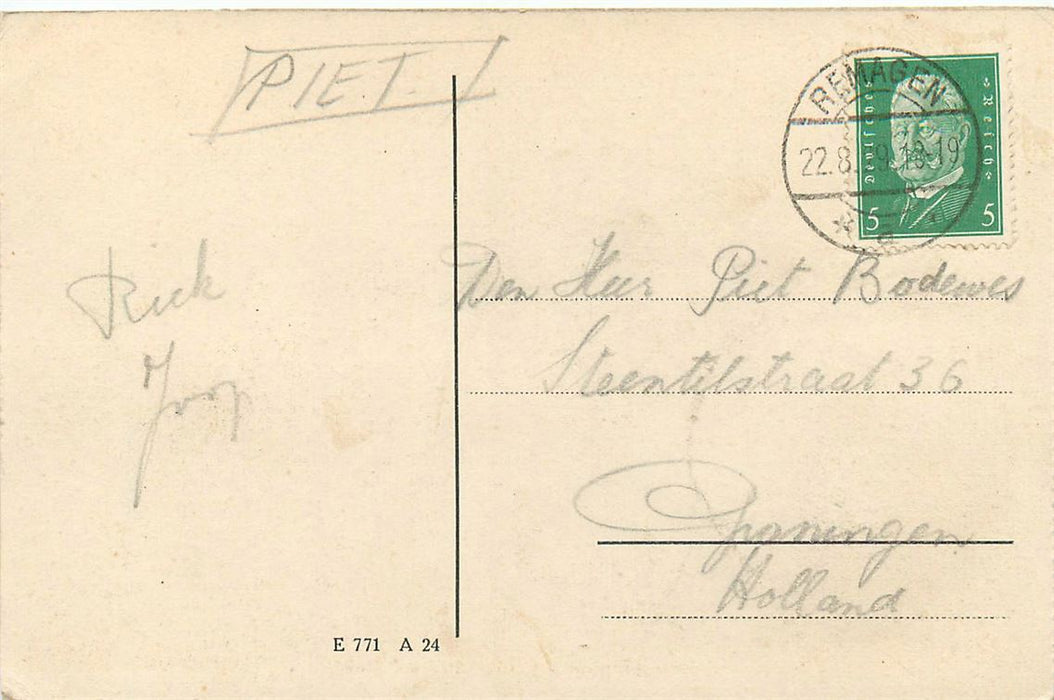 PIET.
REMAGEN
22.8. 9.18-19
* a
Deutsches Reich
5 5
Den Heer Piet Bodewes
Steentilstraat 36
Groningen
Holland
Rick
Joop
E 771 A 24